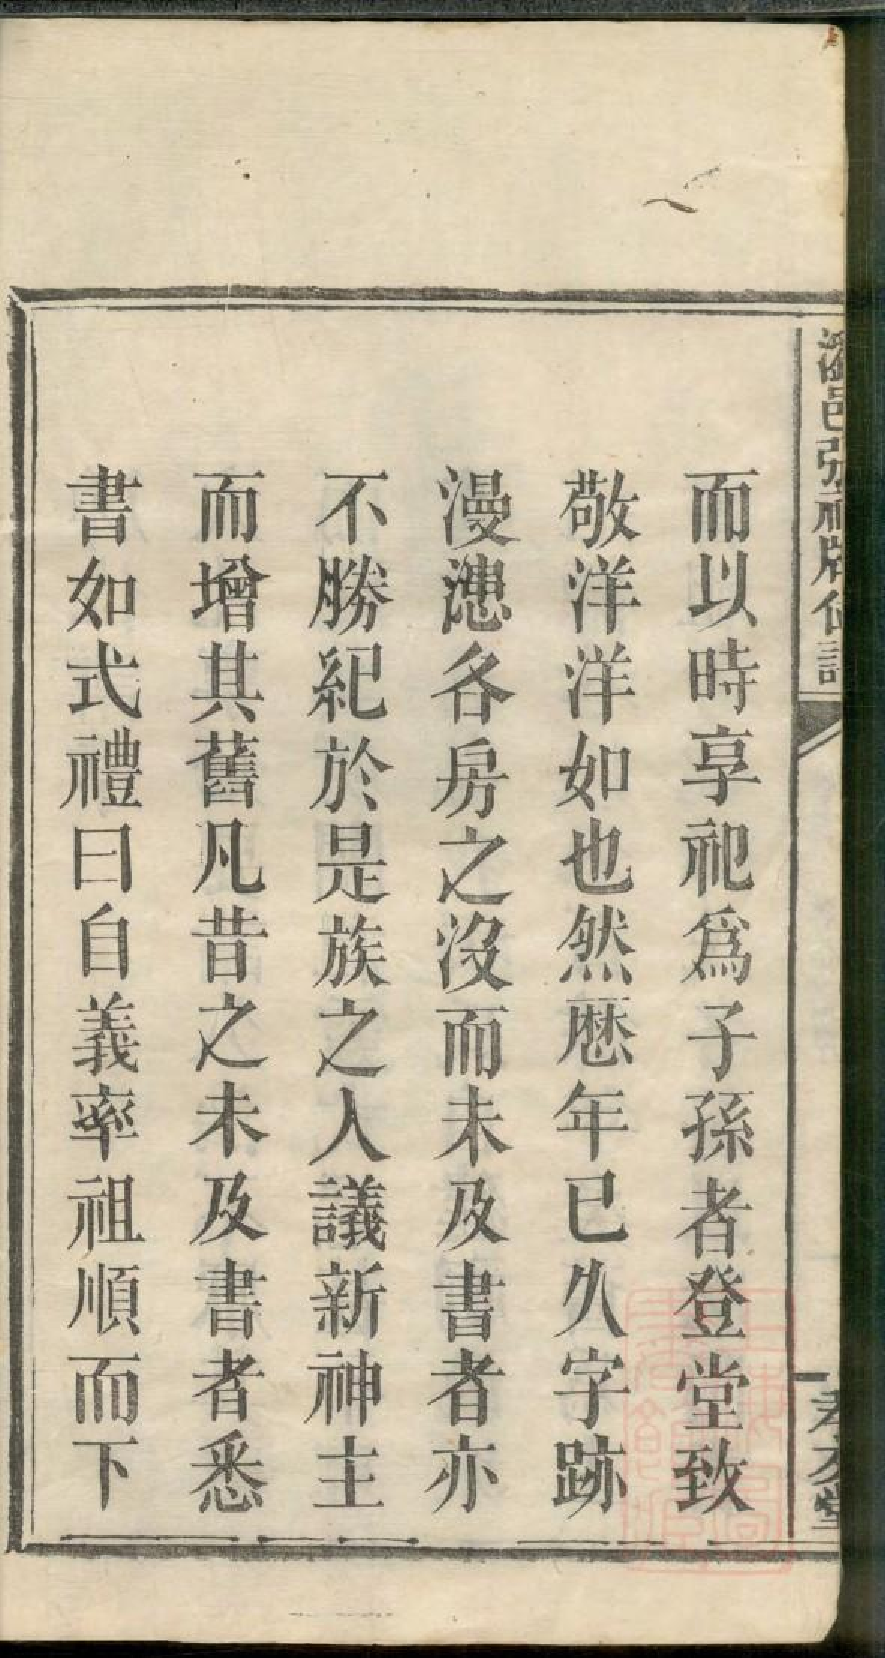 而以時享祀爲子孫者登堂致
敬洋洋如也然歷年已久字跡
漫漶各房之沒而未及書者亦
不勝紀於是族之人議新神主
而增其舊凡昔之未及書者悉
書如式禮曰自義率祖順而下
邑張祠牌位譜
孝友堂